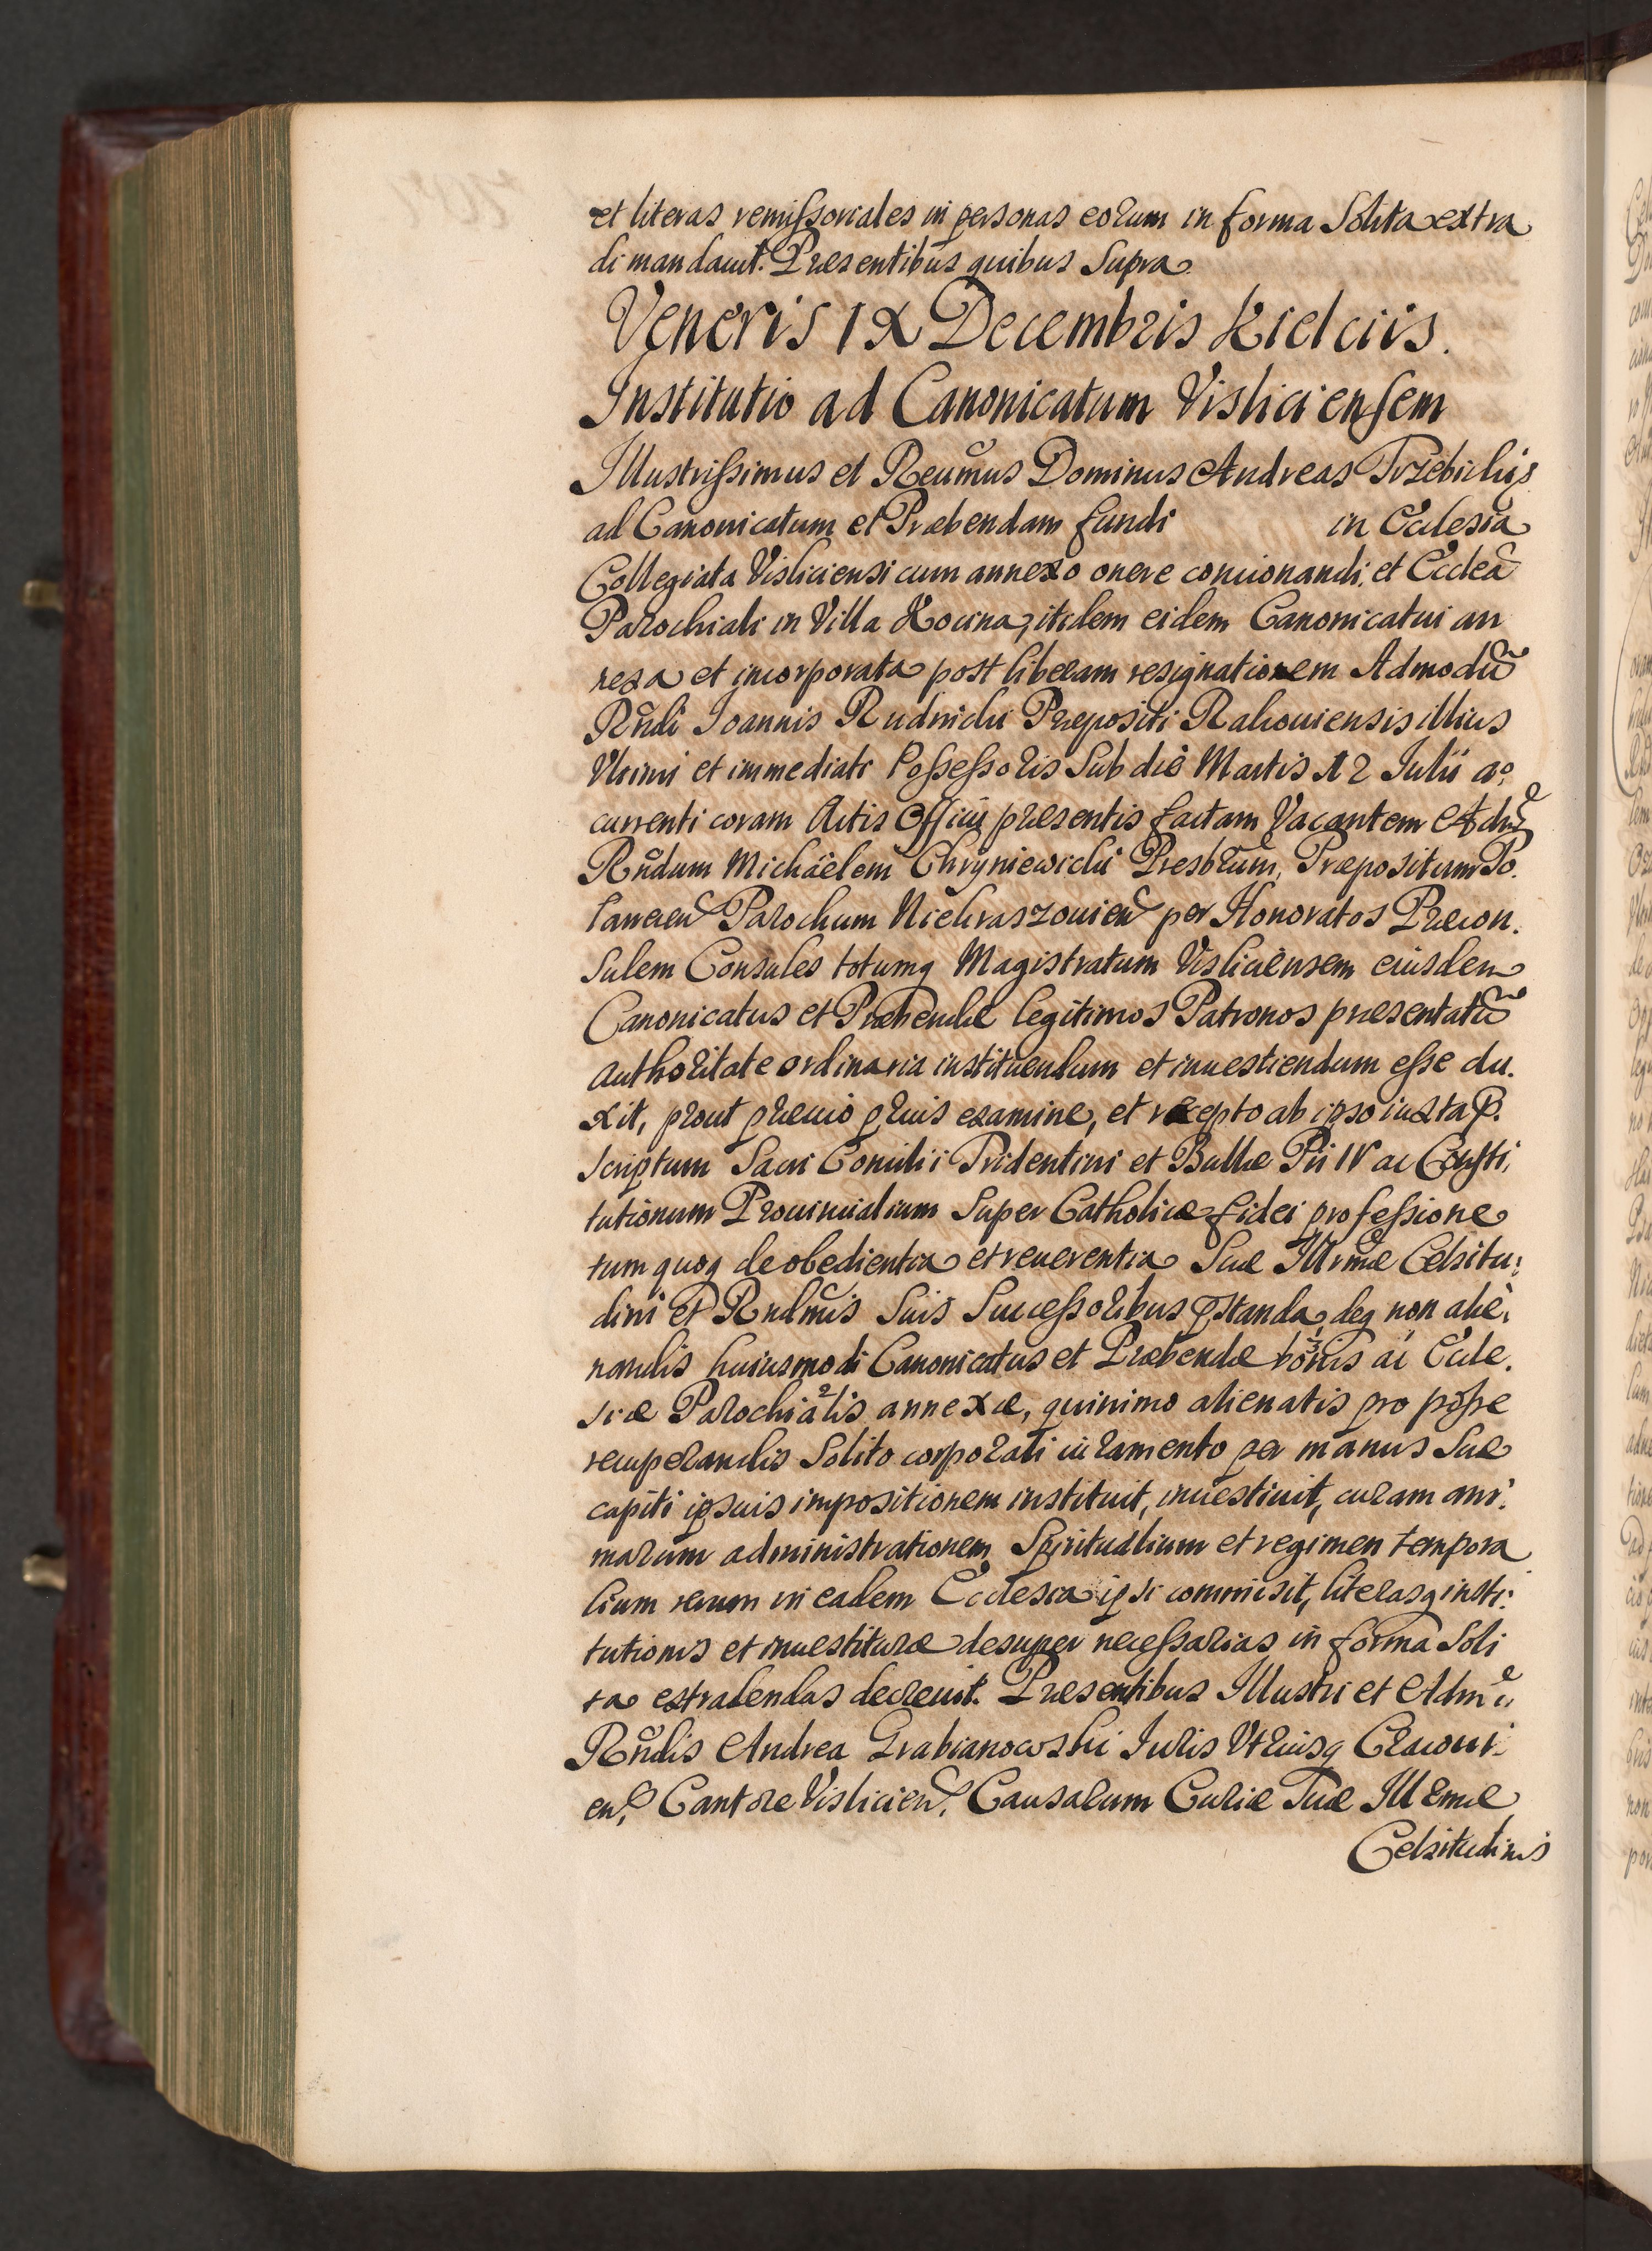 et literas remissoriales in personas eorum in forma Solita extra
di mandauit. Præsentibus quibus Supra
Veneris IX Decembris Kielciis.
Institutio ad Canonicatum Visliciensem
Illustrissimus et Reũmus Dominus Andreas Trzebicki
ad Canonicatum et Præbendam fundi in Ecclesia
Collegiata Visliciensi cum annexo onere concionandi, et Eccleã
Parochiali in Villa Kocina, itidem eidem Canonicatui an
nexa et incorporata post liberam resignationem Admodũ
Rñdi Joannis Rudnicki Præpositi Rakouiensis illius
Vltimi et immediati Possessoris Sub die Martis 12 Julii aº
currenti coram Actis Officij præsentis factam Vacantem Adm̃
Rñdum Michäelem Chryniewicki Presbrum, Præpositum Po.
laneceñ Parochum Niekraszouieñ per Honoratos Præcon.
Sulem Consules totumq Magistratum Visliciensem eiusdem
Canonicatus et Præbendæ legitimos Patronos præsentatũ
authoritate ordinaria instituendum et inuestiendum esse du.
xit, prout præuio prius examine, et recepto ab ipso iuxta P.
scriptum Sacri Concilii Tridentini et Bullæ Pii IV ac Consti.
tutionum Prouincialium Super Catholicæ fidei professione
tum quoq de obedientia et reuerentia Suæ Illrmæ Celsitu.
dini et Rndmis Suis Successoribus pstanda, deq non alie.
nandis huiusmodi Canonicatus et Præbendæ bonis ac Eccle.
siæ Parochialis annexæ, quinimo alienatis pro posse
recuperandis Solito corporali iuramento per manus Suæ
capiti ipsuis impositionem instituit, inuestiuit, curam ani.
marum administrationem Spiritualium et regimen tempora
lium rerum in eadem Ecclesia ipsi commisit, literasq insti.
tutionis et inuestituræ desuper necessarias in forma Soli
ta extradendas decreuit. Præsentibus Illustri et Adm̃
Rñdis Andrea Grabianowski Juris Vtriusq Cracoui.
eñ, Cantore Vislicieñ, Causarum Curiæ Suæ Illrmæ
Celsitudinis